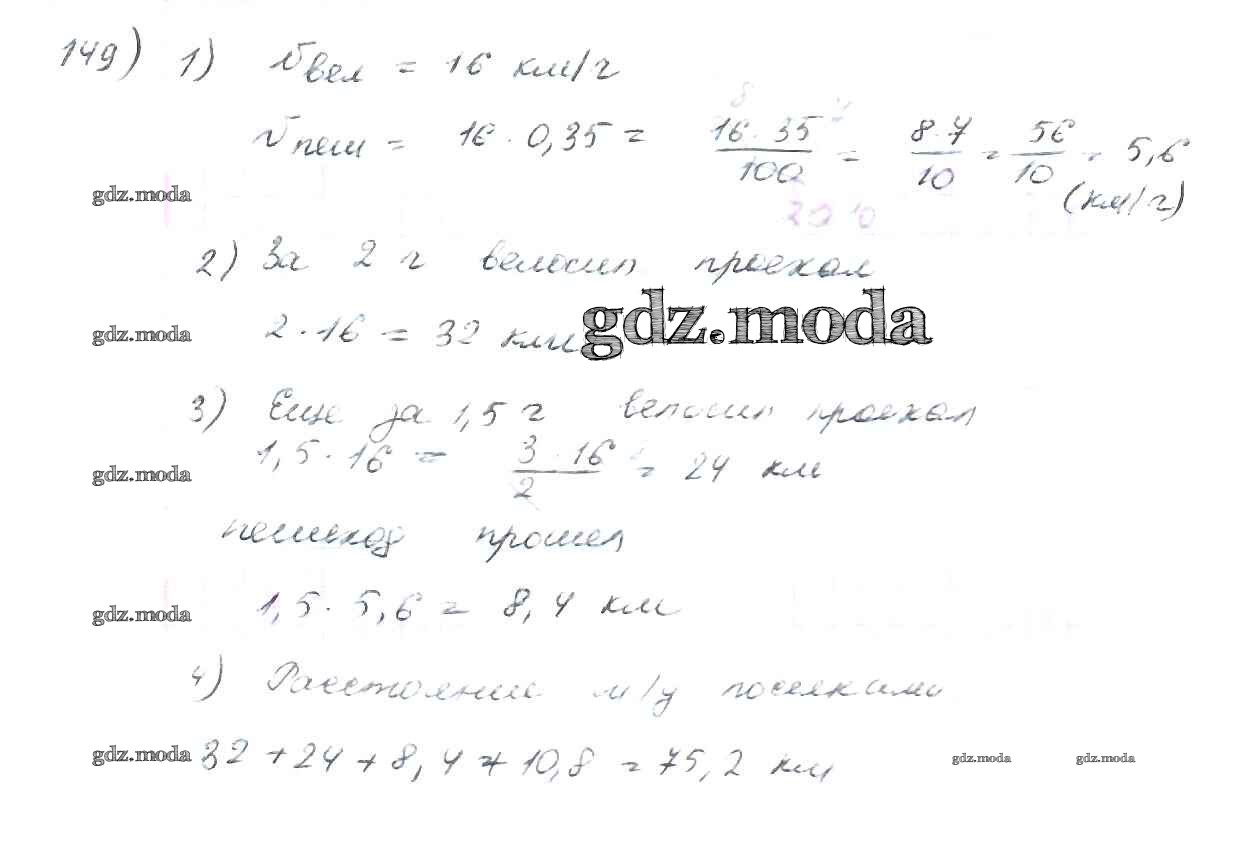 149) 1) Vвел = 16 км/ч
Vпеш = 16 · 0,35 = 16·35/100 = 8·7/10 = 56/10 = 5,6 (км/ч)
gdz.moda
2) За 2 ч велосип проехал
gdz.moda 2·16 = 32 км gdz.moda
3) Еще за 1,5 ч велосип проехал
1,5·16 = 3·16/2 = 24 км
gdz.moda
пешеход прошел
gdz.moda 1,5·5,6 = 8,4 км
4) Расстояние м/у поселками
gdz.moda 32+24+8,4+10,8 = 75,2 км gdz.moda gdz.moda